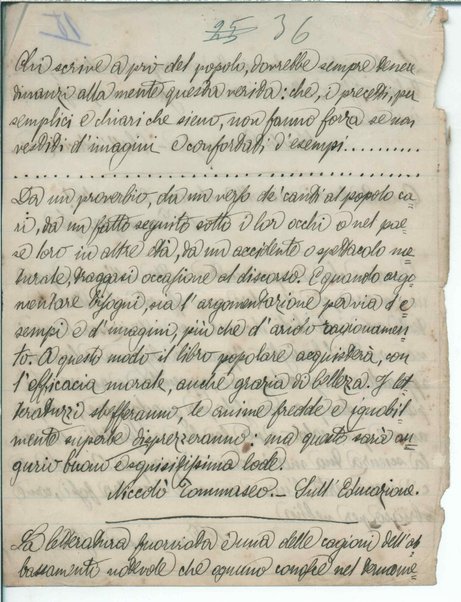 15
25 36
Chi scrive a prò del popolo, dovrebbe sempre tenere
dinanzi alla mente questa verità: che, i precetti, per
semplici e chiari che sieno, non fanno forza se non
vestiti d'imagini e confortati d'esempi...........
..................................................
Da un proverbio, da un verso de' canti al popolo ca=
ri, da un fatto seguito sotto i lor occhi o nel pae=
se loro in altre età, da un accidente o spettacolo na=
turale, traggasi occasione al discorso. E quando argo=
mentare bisogni, sia l'argomentazione per via d'e=
sempi e d'imagini, più che d'arido ragionamen=
to. A questo modo il libro popolare acquisterà, con
l'efficacia morale, anche grazia di bellezza. I let=
teratuzzi sbufferanno, le anime fredde e ignobil=
mente superbe disprezzeranno: ma questo sarà au=
gurio buono e squisitissima lode.
Niccolò Tommaseo. – Sull'Educazione.
La letteratura fuorviata è una delle cagioni dell'ab
bassamento notevole che ognuno